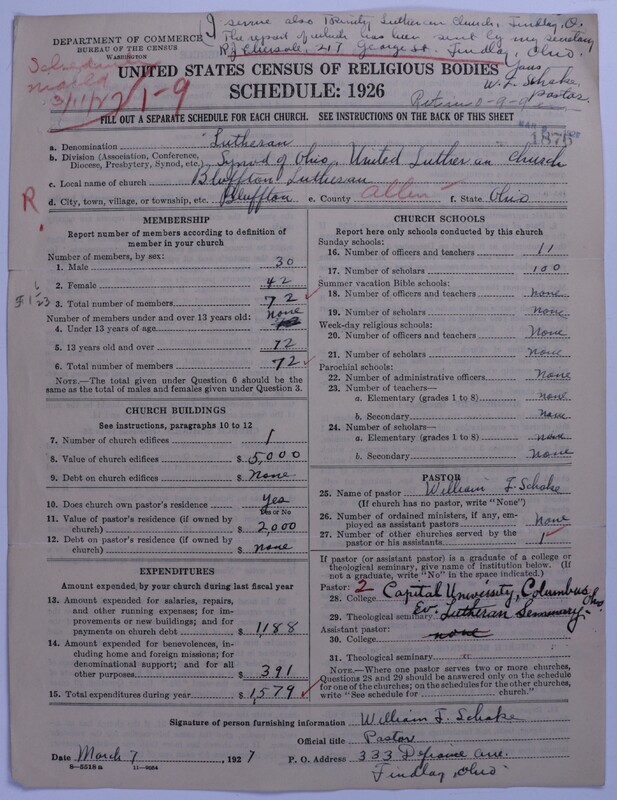 I serve also Trinity Lutheran Church, Findlay, O.
The report of which has been sent by my secretary
R.J. 217 George St. Findlay, Ohio.
Yours
W. F. Schake,
Pastor.
DEPARTMENT OF COMMERCE
BUREAU OF THE CENSUS
WASHINGTON
3/11/27
1-9
UNITED STATES CENSUS OF RELIGIOUS BODIES
SCHEDULE: 1926
FILL OUT A SEPARATE SCHEDULE FOR EACH CHURCH. SEE INSTRUCTIONS ON THE BACK OF THIS SHEET
1876
a. Denomination Lutheran
b. Division (Association, Conference, Diocese, Presbytery, Synod, etc.) Synod of Ohio, United Lutheran Church
c. Local name of church Bluffton Lutheran
d. City, town, village, or township, etc. Bluffton e. County Allen f. State Ohio
R
MEMBERSHIP
Report number of members according to definition of
member in your church
Number of members, by sex:
1. Male 30
2. Female 42
3. Total number of members 72
Number of members under and over 13 years old:
4. Under 13 years of age none
5. 13 years old and over 72
6. Total number of members 72
NOTE.—The total given under Question 6 should be
same as the total of males and females given under Question 3.
CHURCH BUILDINGS
See instructions, paragraphs 10 to 12
7. Number of church edifices 1
8. Value of church edifices $ 5,000
9. Debt on church edifices $ None
10. Does church own pastor's residence Yes
Yes or No
11. Value of pastor's residence (if owned by
church) $ 2,000
12. Debt on pastor's residence (if owned by
church) $ none
EXPENDITURES
Amount expended by your church during last fiscal year
13. Amount expended for salaries, repairs,
and other running expenses; for im-
provements or new buildings; and for
payments on church debt $ 1,188
14. Amount expended for benevolences, in-
cluding home and foreign missions; for
denominational support; and for all
other purposes $ 391
15. Total expenditures during year $ 1,579
CHURCH SCHOOLS
Report here only schools conducted by this church
Sunday schools:
16. Number of officers and teachers 11
17. Number of scholars 100
Summer vacation Bible schools:
18. Number of officers and teachers none
19. Number of scholars None
Week-day religious schools:
20. Number of officers and teachers None
21. Number of scholars None
Parochial schools:
22. Number of administrative officers None
23. Number of teachers—
a. Elementary (grades 1 to 8) none
b. Secondary None
24. Number of scholars—
a. Elementary (grades 1 to 8) none
b. Secondary None
PASTOR
25. Name of pastor William F. Schake
(If church has no pastor, write "None")
26. Number of ordained ministers, if any, em-
ployed as assistant pastors None
27. Number of other churches served by the
pastor or his assistants 1
If pastor (or assistant pastor) is a graduate of a college or
theological seminary, give name of institution below. (If
not a graduate, write "No" in the space indicated.)
Pastor: 2
28. College Capital University, Columbus, Ohio
29. Theological seminary Ev. Lutheran Seminary
Assistant pastor:
30. College none
31. Theological seminary "
NOTE.—Where one pastor serves two or more churches,
Questions 28 and 29 should be answered only on the schedule
for one of the churches; on the schedules for the other churches,
write "See schedule for church."
Signature of person furnishing information William F. Schake
Official title Pastor
Date March 7, 1927 P. O. Address 333 Defiance Ave.
Findlay, Ohio
8—5518 a 11—9084